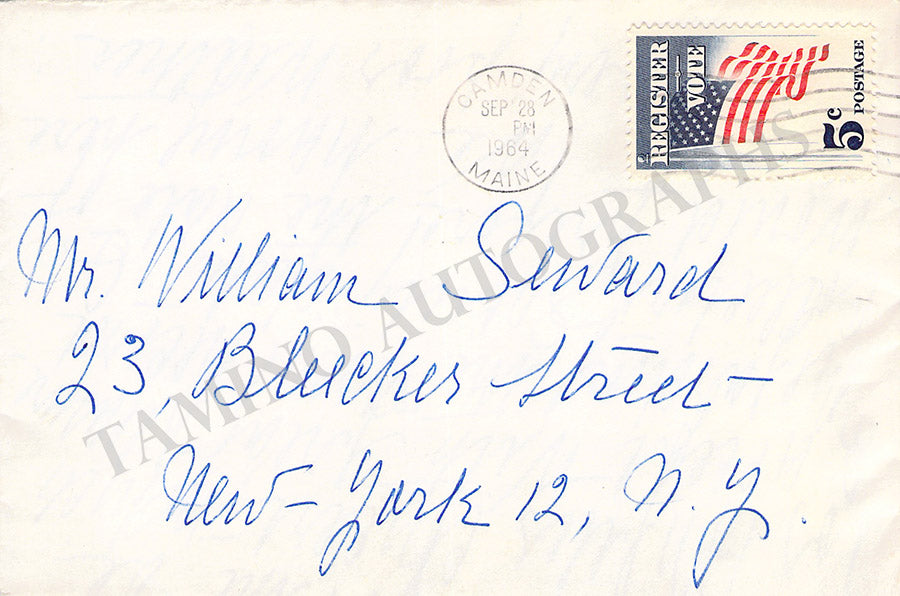 CAMDEN
SEP 28
PM
1964
MAINE
REGISTER
VOTE
5c POSTAGE
Mr. William Seward
23, Bleecker Street –
New – York 12, N. Y.
TAMINO AUTOGRAPHS